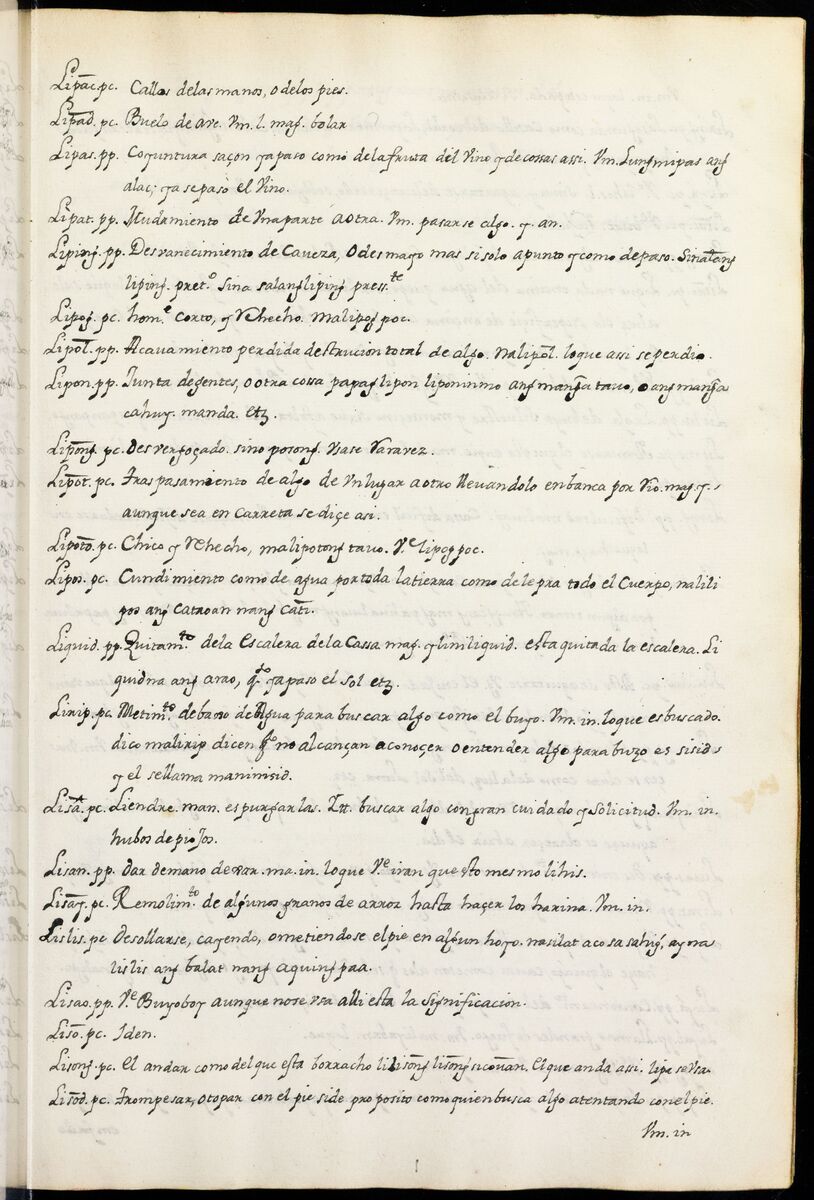 Lipac. pc. Callos delas manos, o delos pies.
Lipad. pc. Buelo de ave. Vm. l. mag. bolar
Lipas. pp. Coyuntura saçon ya paso como dela fruta del Vino y de cossas assi. Vm. Lungmipas ang
alac; ya se pasò el Vino.
Lipat. pp. Mudamiento de Vna parte a otra. Vm. pasarse algo. y. an.
Liping. pp. Desvanecimiento de Caveza, O desmayo mas si solo a punto y como de paso. Sinalang
liping. pret.º Sina salangliping press.te
Lipog. pc. hom.e corto, y Rehecho. Malipog poc.
Lipol. pp. Acavamiento perdida destrucion total de algo. Nalipol. loque assi se perdio.
Lipon. pp. Junta de gentes, o otra cossa papag lipon liponinmo ang manga tavo, o ang manga
cahuy. manda. etz
Lipong. pc. desvergoçado. sino posong. Vsase Raravez.
Lipot. pc. Traspasamiento de algo de Vn lugar a otro llevandolo enbanca por Rio. mag. y.
aunque sea en Carreta se diçe asi.
Lipoto. pc. Chico y Rehecho, malipotong tavo. V.e lipog poc.
Lipos. pc. Cundimiento como de agua por toda la tierra como de lepra todo el Cuerpo, nalili
pos ang catavan nang cati.
Liquid. pp. Quitam.to dela Escalera dela Cassa mag. y liniliquid. esta quitada la escalera. Li
quidna ang arao, q.do ya paso el sol etz.
Lirip. pc. Metim.to debaxo de Agua para buscar algo como el buzo. Vm. in. loque es buscado.
dico malirip dicen q.do no alcançan a conoçer o entender algo para buzo es sisid
y el se llama maninisid.
Lisa. pc. Liendre. man. espurgarlas. Itt. buscar algo con gran cuidado y Solicitud. Vm. in.
hubos de piojos.
Lisan. pp. dar de mano dexar. ma. in. loque V.e iran que esto mesmo lihis.
Lisay. pc. Remolim.to de algunos granos de arroz hasta haçer los harina. Vm. in.
Lislis. pc Desollarse, cayendo, o metiendose el pie en algun hoyo. nasilat aco sa sahig, ay na
lislis ang balat nang aquing paa.
Lisao. pp. V.e Buyoboy aunque no se vsa alli esta la Significacion.
Liso. pc. Iden.
Lisong. pc. El andar como del que esta borracho lilisong lisong si couan. El que anda assi. lipe se Vsa.
Lisod. pc. Trompesar, o topar con el pie side proposito como quien busca algo atentando con el pie.
Vm. in